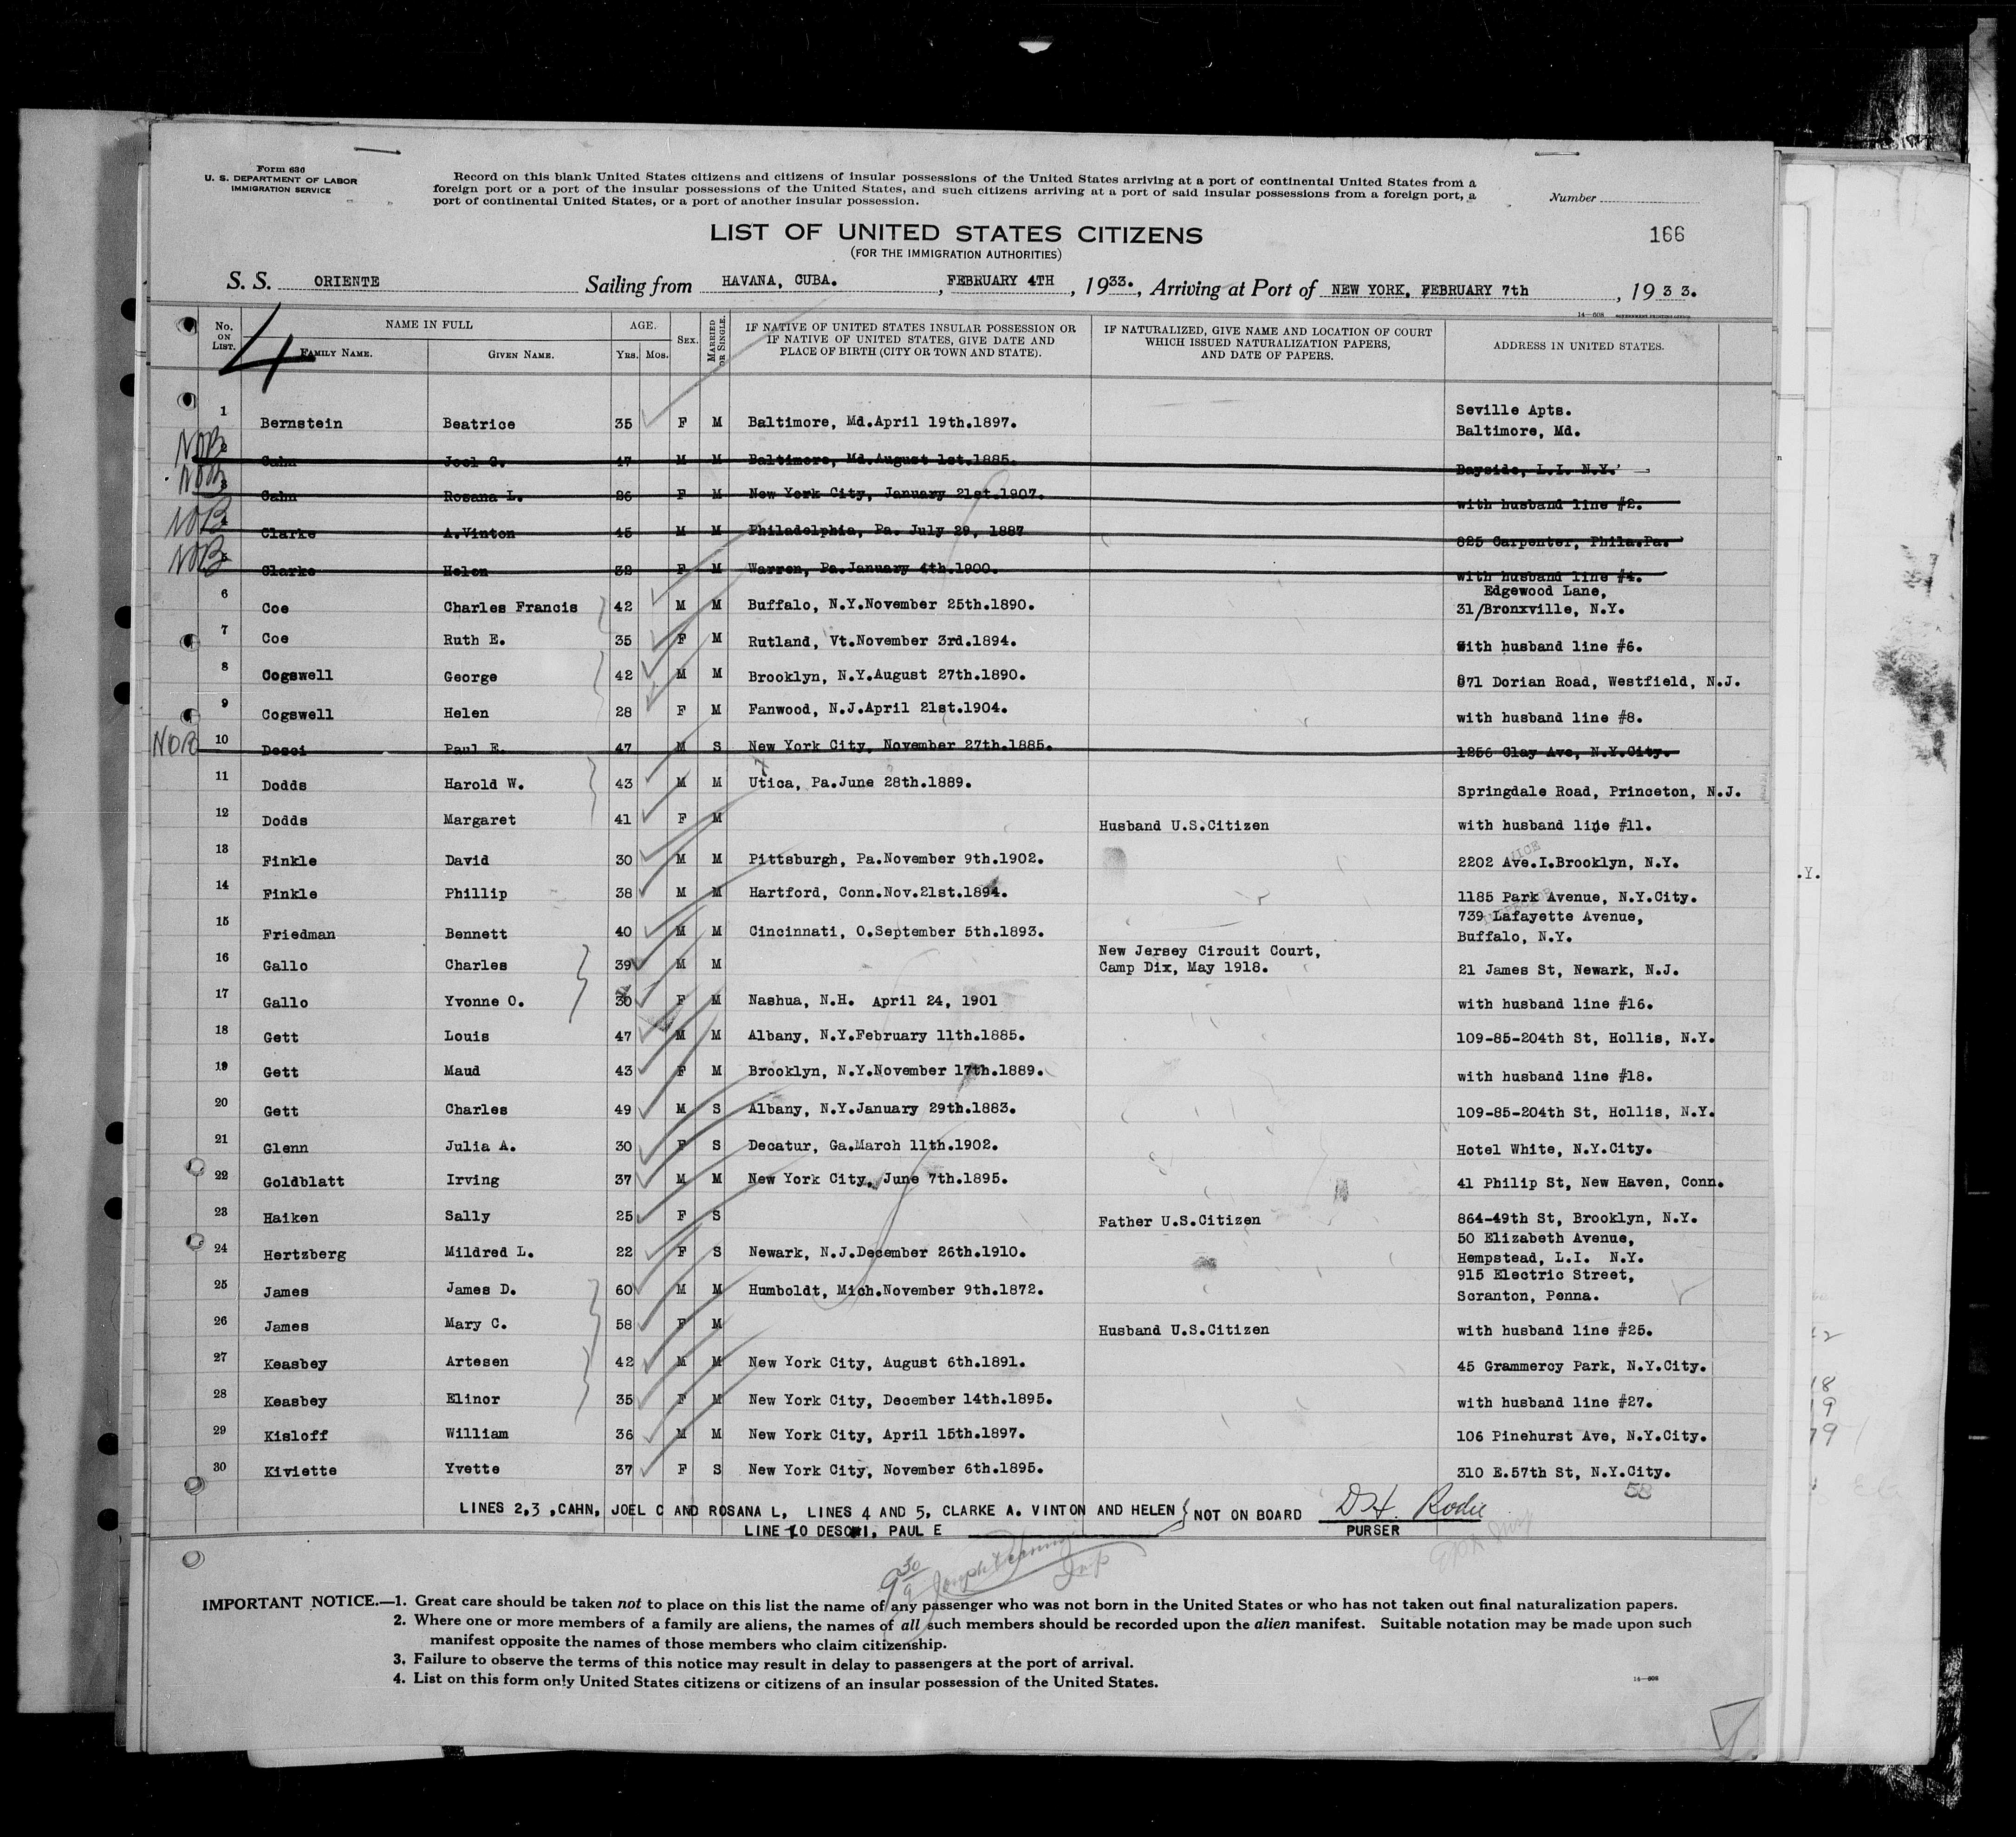 Form 630
U. S. DEPARTMENT OF LABOR
IMMIGRATION SERVICE
Record on this blank United States citizens and citizens of insular possessions of the United States arriving at a port of continental United States from a
foreign port or a port of the insular possessions of the United States, and such citizens arriving at a port of said insular possessions from a foreign port, a
port of continental United States, or a port of another insular possession.
Number
LIST OF UNITED STATES CITIZENS
(FOR THE IMMIGRATION AUTHORITIES)
166
S. S. ORIENTE Sailing from HAVANA, CUBA. , FEBRUARY 4TH , 1933. , Arriving at Port of NEW YORK, FEBRUARY 7th , 193 3.
14—508 GOVERNMENT PRINTING OFFICE
4
No. ON LIST. NAME IN FULL FAMILY NAME. GIVEN NAME. AGE. Yrs. Mos. SEX. MARRIED OR SINGLE. IF NATIVE OF UNITED STATES INSULAR POSSESSION OR IF NATIVE OF UNITED STATES, GIVE DATE AND PLACE OF BIRTH (CITY OR TOWN AND STATE). IF NATURALIZED, GIVE NAME AND LOCATION OF COURT WHICH ISSUED NATURALIZATION PAPERS, AND DATE OF PAPERS. ADDRESS IN UNITED STATES.
1 Bernstein Beatrice 35 F M Baltimore, Md.April 19th.1897. Seville Apts.
Baltimore, Md.
NOB 2 Cahn Joel C. 47 M M Baltimore, Md.August 1st.1885. Bayside, L.I. N.Y.
NOB 3 Cahn Rosana L. 26 F M New York City, January 21st.1907. with husband line #2.
NOB 4 Clarke A.Vinton 45 M M Philadelphia, Pa. July 29, 1887 825 Carpenter, Phila.Pa.
NOB 5 Clarke Helen 32 F M Warren, Pa.January 4th.1900. with husband line #4.
6 Coe Charles Francis 42 M M Buffalo, N.Y.November 25th.1890. Edgewood Lane,
31/Bronxville, N.Y.
7 Coe Ruth E. 35 F M Rutland, Vt.November 3rd.1894. with husband line #6.
8 Cogswell George 42 M M Brooklyn, N.Y.August 27th.1890. 871 Dorian Road, Westfield, N.J.
9 Cogswell Helen 28 F M Fanwood, N.J.April 21st.1904. with husband line #8.
NOB 10 Desci Paul E. 47 M S New York City, November 27th.1885. 1256 Clay Ave, N.Y.City.
11 Dodds Harold W. 43 M M Utica, Pa.June 28th.1889. Springdale Road, Princeton, N.J.
12 Dodds Margaret 41 F M Husband U.S.Citizen with husband line #11.
13 Finkle David 30 M M Pittsburgh, Pa.November 9th.1902. 2202 Ave.I.Brooklyn, N.Y.
14 Finkle Phillip 38 M M Hartford, Conn.Nov.21st.1894. 1185 Park Avenue, N.Y.City.
15 Friedman Bennett 40 M M Cincinnati, O.September 5th.1893. 739 Lafayette Avenue,
Buffalo, N.Y.
16 Gallo Charles 39 M M New Jersey Circuit Court,
Camp Dix, May 1918. 21 James St, Newark, N.J.
17 Gallo Yvonne O. 30 F M Nashua, N.H. April 24, 1901 with husband line #16.
18 Gett Louis 47 M M Albany, N.Y.February 11th.1885. 109-85-204th St, Hollis, N.Y.
19 Gett Maud 43 F M Brooklyn, N.Y.November 17th.1889. with husband line #18.
20 Gett Charles 49 M S Albany, N.Y.January 29th.1883. 109-85-204th St, Hollis, N.Y.
21 Glenn Julia A. 30 F S Decatur, Ga.March 11th.1902. Hotel White, N.Y.City.
22 Goldblatt Irving 37 M M New York City, June 7th.1895. 41 Philip St, New Haven, Conn.
23 Haiken Sally 25 F S Father U.S.Citizen 864-49th St, Brooklyn, N.Y.
24 Hertzberg Mildred L. 22 F S Newark, N.J.December 26th.1910. 50 Elizabeth Avenue,
Hempstead, L.I. N.Y.
25 James James D. 60 M M Humboldt, Mich.November 9th.1872. 915 Electric Street,
Scranton, Penna.
26 James Mary C. 58 F M Husband U.S.Citizen with husband line #25.
27 Keasbey Artesen 42 M M New York City, August 6th.1891. 45 Grammercy Park, N.Y.City.
28 Keasbey Elinor 35 F M New York City, December 14th.1895. with husband line #27.
29 Kisloff William 36 M M New York City, April 15th.1897. 106 Pinehurst Ave, N.Y.City.
30 Kiviette Yvette 37 F S New York City, November 6th.1895. 310 E.57th St, N.Y.City.
58
LINES 2,3 ,CAHN, JOEL C AND ROSANA L, LINES 4 AND 5, CLARKE A. VINTON AND HELEN } NOT ON BOARD D H. Rodie
LINE 10 DESCI, PAUL E PURSER
9 30/9 Insp
IMPORTANT NOTICE.—1. Great care should be taken not to place on this list the name of any passenger who was not born in the United States or who has not taken out final naturalization papers.
2. Where one or more members of a family are aliens, the names of all such members should be recorded upon the alien manifest. Suitable notation may be made upon such
manifest opposite the names of those members who claim citizenship.
3. Failure to observe the terms of this notice may result in delay to passengers at the port of arrival.
4. List on this form only United States citizens or citizens of an insular possession of the United States.
14—508